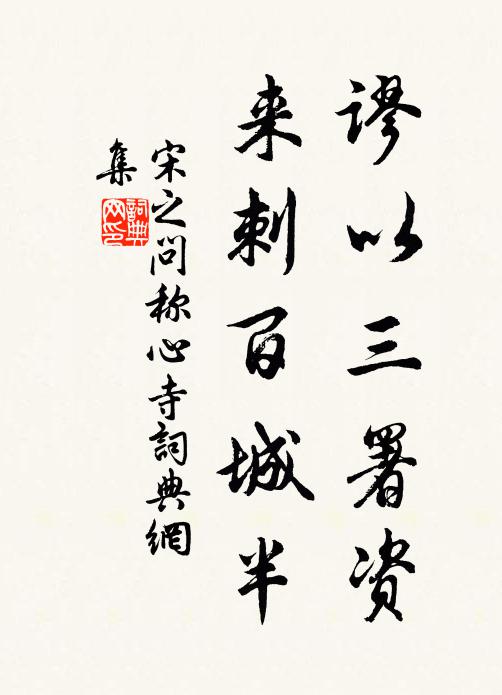 谬以三署资
来刺百城半
宋之问称心寺詞典網
集
詞典网印